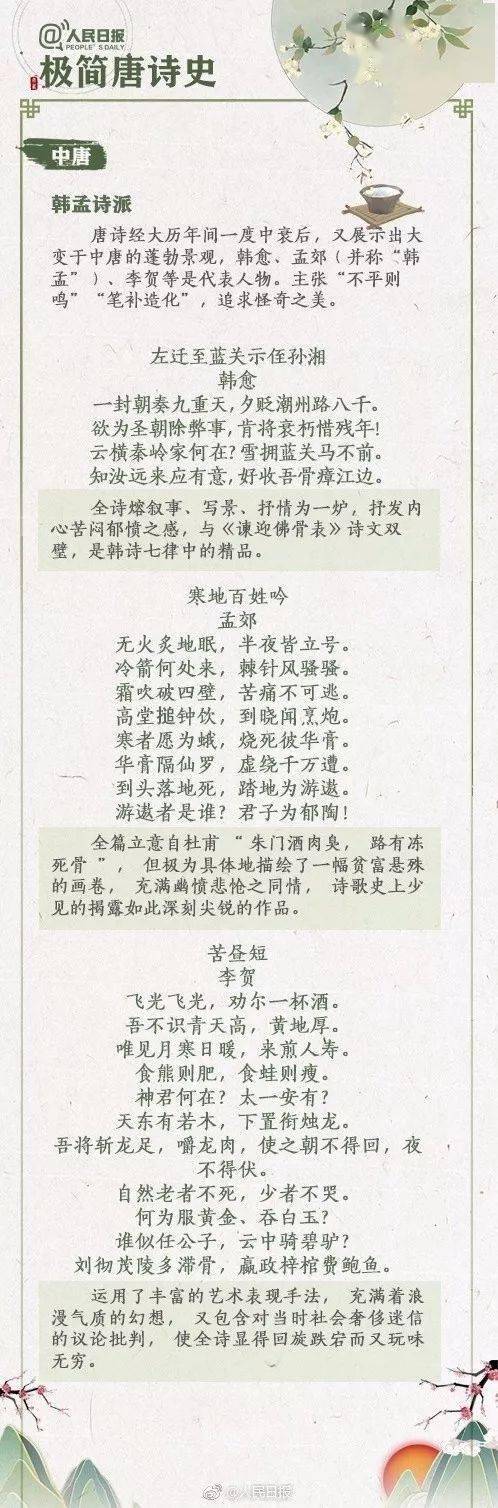 @人民日报
PEOPLE'S DAILY
极简唐诗史
中唐
韩孟诗派
唐诗经大历年间一度中衰后，又展示出大
变于中唐的蓬勃景观，韩愈、孟郊（并称“韩
孟”）、李贺等是代表人物。主张“不平则
鸣”“笔补造化”，追求怪奇之美。
左迁至蓝关示侄孙湘
韩愈
一封朝奏九重天，夕贬潮州路八千。
欲为圣朝除弊事，肯将衰朽惜残年！
云横秦岭家何在？雪拥蓝关马不前。
知汝远来应有意，好收吾骨瘴江边。
全诗熔叙事、写景、抒情为一炉，抒发内
心苦闷郁愤之感，与《谏迎佛骨表》诗文双
璧，是韩诗七律中的精品。
寒地百姓吟
孟郊
无火炙地眠，半夜皆立号。
冷箭何处来，棘针风骚骚。
霜吹破四壁，苦痛不可逃。
高堂搥钟饮，到晓闻烹炮。
寒者愿为蛾，烧死彼华膏。
华膏隔仙罗，虚绕千万遭。
到头落地死，踏地为游遨。
游遨者是谁？君子为郁陶！
全篇立意自杜甫“朱门酒肉臭，路有冻
死骨”，但极为具体地描绘了一幅贫富悬殊
的画卷，充满幽愤悲怆之同情，诗歌史上少
见的揭露如此深刻尖锐的作品。
苦昼短
李贺
飞光飞光，劝尔一杯酒。
吾不识青天高，黄地厚。
唯见月寒日暖，来煎人寿。
食熊则肥，食蛙则瘦。
神君何在？太一安有？
天东有若木，下置衔烛龙。
吾将斩龙足，嚼龙肉，使之朝不得回，夜
不得伏。
自然老者不死，少者不哭。
何为服黄金、吞白玉？
谁似任公子，云中骑碧驴？
刘彻茂陵多滞骨，嬴政梓棺费鲍鱼。
运用了丰富的艺术表现手法，充满着浪
漫气质的幻想，又包含对当时社会奢侈迷信
的议论批判，使全诗显得回旋跌宕而又玩味
无穷。
@人民日报